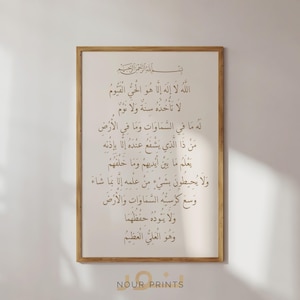 بسم الله الرحمن الرحيم
اللَّهُ لَا إِلَهَ إِلَّا هُوَ الْحَيُّ الْقَيُّومُ
لَا تَأْخُذُهُ سِنَةٌ وَلَا نَوْمٌ
لَهُ مَا فِي السَّمَاوَاتِ وَمَا فِي الْأَرْضِ
مَنْ ذَا الَّذِي يَشْفَعُ عِنْدَهُ إِلَّا بِإِذْنِهِ
يَعْلَمُ مَا بَيْنَ أَيْدِيهِمْ وَمَا خَلْفَهُمْ
وَلَا يُحِيطُونَ بِشَيْءٍ مِنْ عِلْمِهِ إِلَّا بِمَا شَاءَ
وَسِعَ كُرْسِيُّهُ السَّمَاوَاتِ وَالْأَرْضَ
وَلَا يَئُودُهُ حِفْظُهُمَا
وَهُوَ الْعَلِيُّ الْعَظِيمُ
NOUR PRINTS